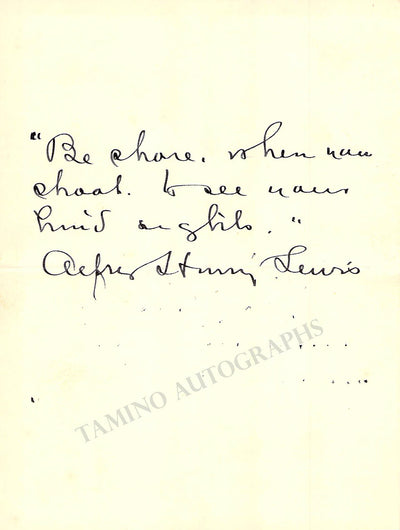 "Be shore, when you
shoot. to see your
hind sights."
Alfred Henry Lewis
TAMINO AUTOGRAPHS